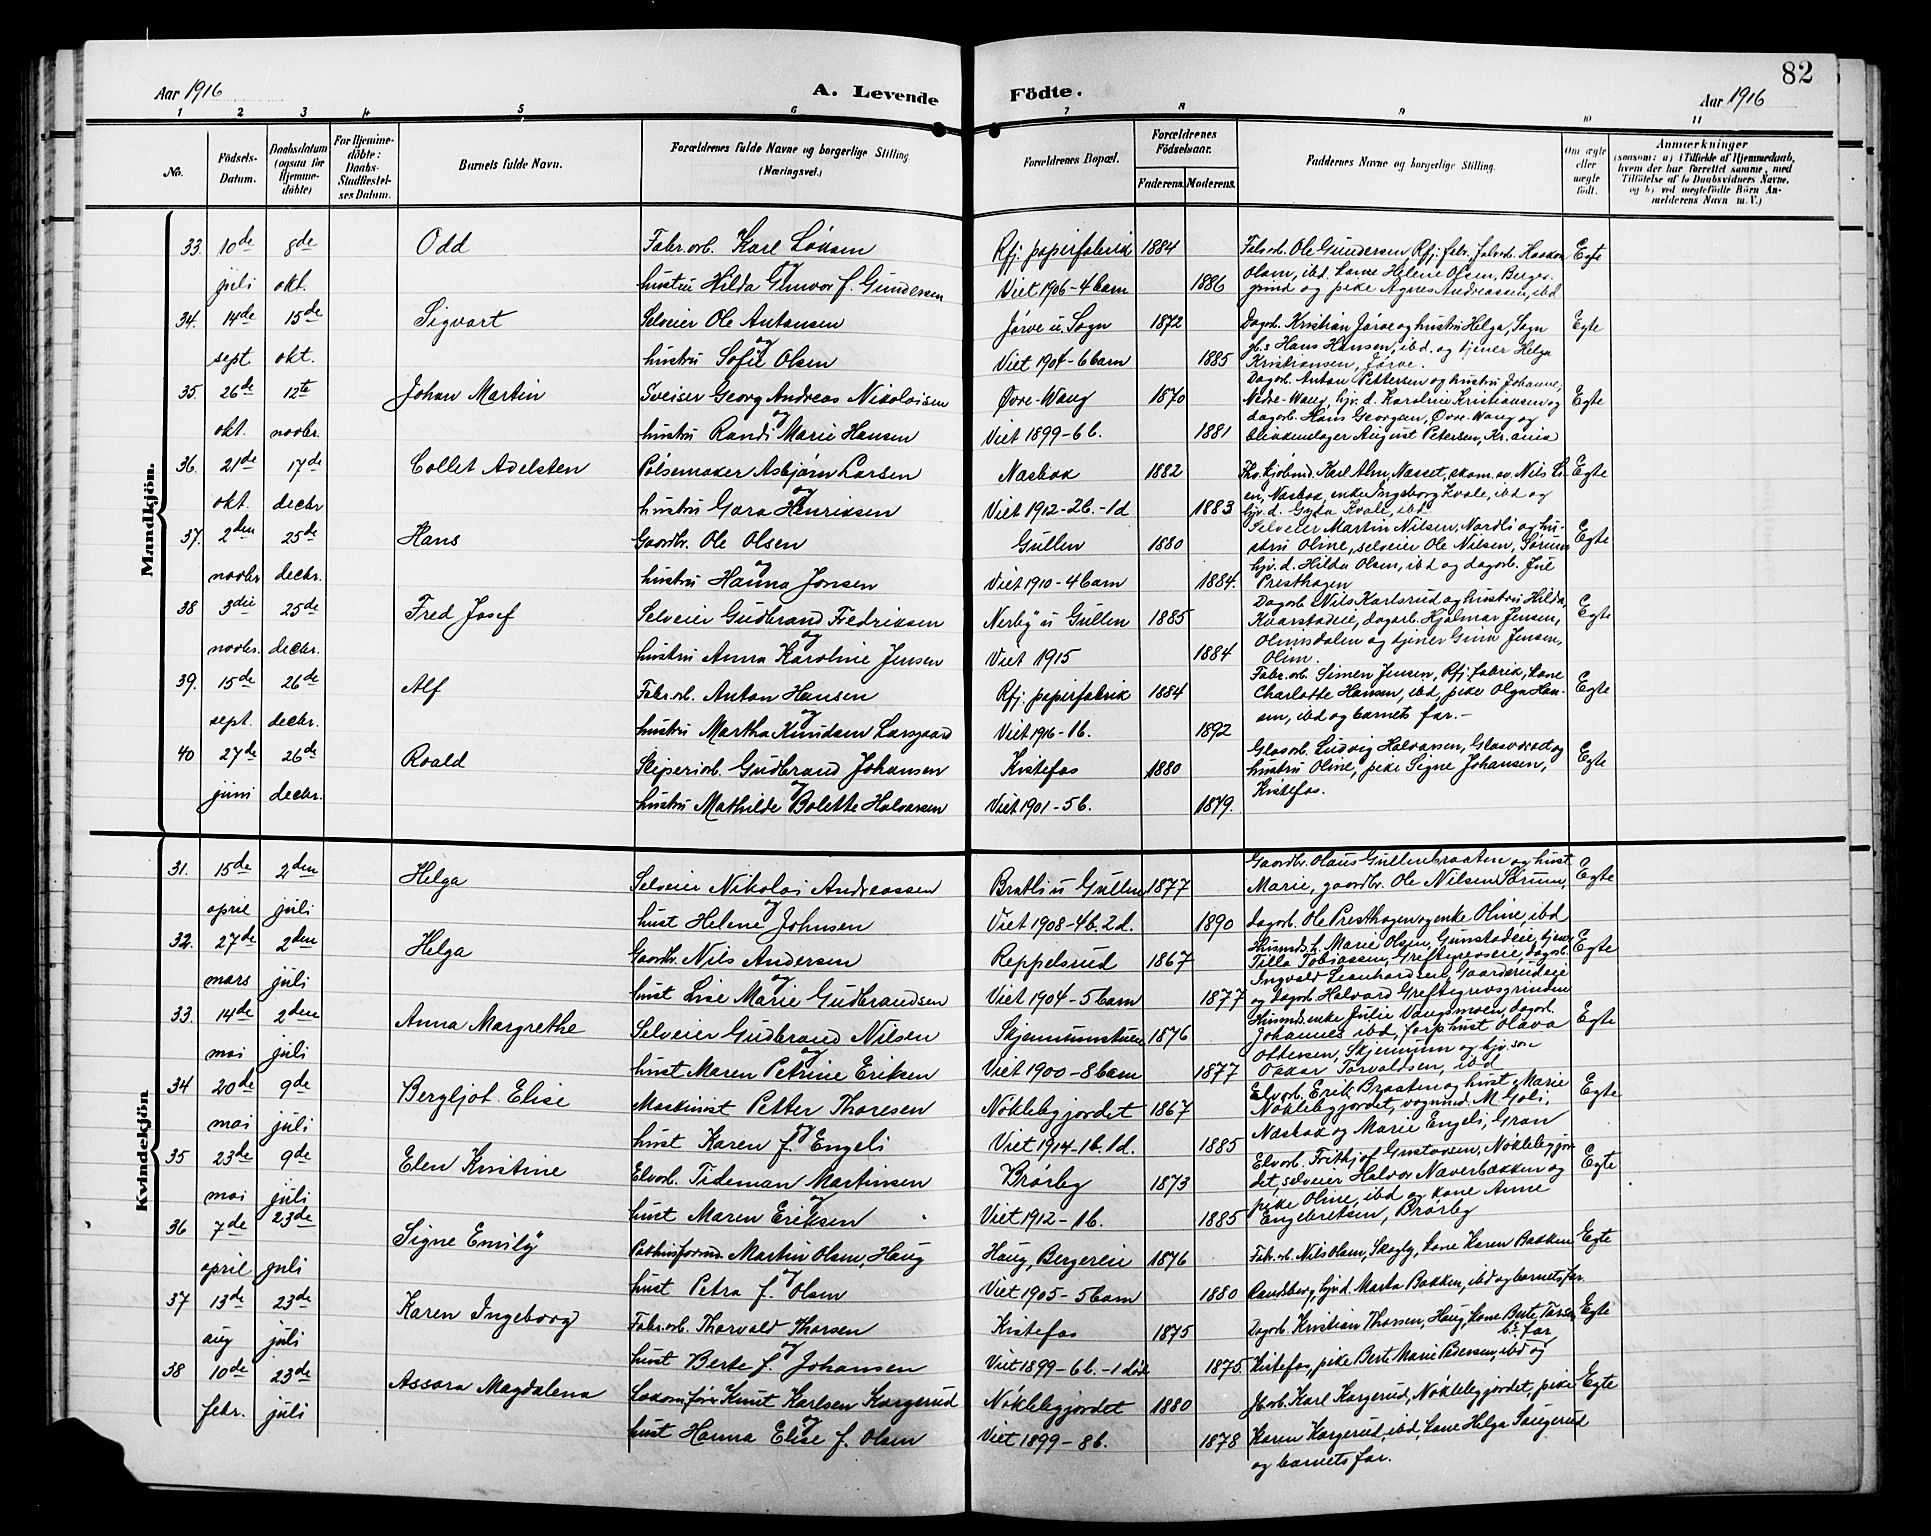 82
Aar 1916
A. Levende
Födte.
Aar 1916
1 2 3 4 5 6 7 8 9 10 11
No.
Födsels-Datum.
Daabsdatum (ogsaa for Hjemme-döbte)
For Hjemme-döbte: Daabs-Stadfæstel-ses Datum.
Barnets fulde Navn.
Forældrenes fulde Navne og borgerlige Stilling (Næringsvei.)
Forældrenes Bopæl.
Forældrenes Födselsaar.
Faderens. Moderens.
Faddernes Navne og borgerlige Stilling.
Om ægte eller uægte födt.
Anmærkninger
(saasom: a) i Tilfælde af Hjemmedaab,
hvem der har forrettet samme, med
Tilföielse af to Daabsvidners Navne,
og b) ved uægtefödte Börn An-
melderens Navn m. V.)
Mandkjön.
33. 10de 8de Odd Fabr.arb. Karl Lönsen Rfj. papirfabrik 1884 Fabr.arb. Ole Gundersen, Rfj. fabr. fabr.arb. Haakon Egte
juli okt. og hustru Hilda Gunvor f. Gundersen Viet 1906 - 4 barn 1886 Olsen, ibd. kone Helene Olsen, Berger-
grind og pike Agnes Andreassen, ibd
34. 14de 15de Sigvart Selveier Ole Antonsen Jørve u. Sogn 1872 Dagarb. Kristian Jørve og hustru Helga, Sogn Egte
sept okt. og hustru Sofie Olsen Viet 1904 - 6 barn 1885 Hans Hansen, ibd. og tjener Helga
Kristiansen, Jørve.
35. 26de 12te Johan Martin Sveiser Georg Andreas Nikolaisen Øvre-Wang 1870 Dagarb. Anton Pettersen og hustru Johanne, Egte
Nedre-Wang, hjv. d. Karoline Kristiansen og
okt. novbr. og hustru Randi Marie Hansen Viet 1899 - 6 b. 1881 dagarb. Hans Georgsen, Øvre-Wang og
blikkenslager August Petersen, Kr.ania
36. 21de 17de Collet Adelsten Pølsemaker Asbjørn Larsen Næsbak 1882 Karl Alm, Næsset, skom. av. Nils Li- Egte
okt. decbr og hustru Gara Henriksen Viet 1912 - 2 b. - 1 d 1883 en, Næsbak, enke Ingeborg Kvale, ibd og
hjv. d. Gyda Kvale, ibd
37. 2den 25de Hans Gaardbr. Ole Olsen Gullen 1880 Selveier Martin Nilsen, Nordli og hu- Egte
stru Oline, selveier Ole Nilsen, Sørum
novbr decbr. og hustru Hanna Jonsen Viet 1910 - 4 barn 1884. hjv. d. Hilda Olsen, ibd og dagarb. Juel
Presthagen
38 3die 25de Fred Josef Selveier Gudbrand Fredriksen Nerby u Gullen 1885 Dagarb. Nils Karlsrud og hustru Hilda, Egte
Kvarstadeie, dagarb. Hjalmar Jensen,
novbr. decbr. og hustru Anna Karoline Jensen Viet 1915 1884 Olimsdalen og tjener Gina Jensen,
Olim.
39. 15de 26de Alf Fabr.arb. Anton Hansen Rfj. papirfabrik 1884 Fabr.arb. Simen Jensen, Rfj. fabrik, kone Egte
Charlotte Hansen, ibd, pike Olga Han-
sept. decbr. og hustru Martha Knudsen Larsgaard Viet 1916 - 1 b. 1892 sen, ibd og barnets far. -
40 27de 26de Roald Sliperiarb. Gudbrand Johansen Kistefos 1880 Glasarb. Ludvig Halvorsen, Glasværket og Egte
hustru Oline, pike Signe Johansen,
juni decbr. og hustru Mathilde Bolette Halvorsen Viet 1901 - 5 b. 1879. Kistefos.
Kvindekjön
31. 15de 2den Helga Selveier Nikolai Andreassen Bratli u Gullen 1877 Gaardbr. Olaus Gullenbraaten og hust Egte
Marie, gaardbr. Ole Nilsen Sørum,
april juli og hust Helene Johnsen Viet 1908 - 4 b. 2 d. 1890 dagarb. Ole Presthagen og enke Oline, ibd
32. 27de 2den Helga Gaardbr. Nils Andersen Reppelsrud 1867 Husmds.h. Marie Olsen, Gunstadeie, tjener Egte
Tilla Tobiassen, Greftegreveie, dagarb.
mars juli og hust Lise Marie Gudbrandsen Viet 1904 - 5 barn 1877 Ingvald Leonhardsen, Gaardsrudeie
og dagarb. Halvard Greftegrevsgrinden
33. 14de 2den Anna Margrethe Selveier Gudbrand Nilsen Skjennumstuen 1876 Husmds.enke Julie Vangsmoen, dagarb. Egte
Johannes ibd, forp. hust Olava
mai juli og hust Maren Petrine Eriksen Viet 1900 - 8 barn 1877 Ottersen, Skjennum og hjv. søn
Oskar Torvaldsen, ibd
34 20de 9de Bergljot Elise Maskinist Petter Thoresen Nøklebygjordet 1867 Elvarb. Erik Braaten og hust. Marie Egte
Nøklebygjordet, vognmd. M. Goli,
mai juli og hust Karen f. Engeli Viet 1914 - 1 b. 1 d. 1885 Næsbak og Marie Engeli, Gran
35 23de 9de Elen Kristine Elvarb. Tideman Martinsen Brørby 1873 Elvarb. Frithjof Gustavsen, Nøklebygjor- Egte
det, selveier Halvor Næverbakken og
mai juli og hust Maren Eriksen Viet 1912 - 1 b. 1885 pike Oline, ibd og kone Anne
Engebretsen, Brørby
36 7de 23de Signe Emily Martin Olsen, Haug Haug, Bergereie 1876 Fabr.arb. Nils Olsen, Skogly, kone Karen Bakken Egte
april juli og hust Petra f. Olsen Viet 1905 - 5 barn 1880 Randsberg, hjv. d. Marta Bakken, ibd og barnets far.
37 13de 23de Karen Ingeborg Fabr.arb. Thorvald Thorsen Kistefos 1875 Dagarb. Kristian Thorsen, Haug, kone Berte Torsen Egte
b. far
aug juli og hust Berte f. Johansen Viet 1899 - 6 b. - 1 død 1875 Kistefos, pike Berte Marie Pedersen, ibd og
38 10de 23de Assora Magdalena Lokomfører Knut Karlsen Korgerud Nøklebygjordet 1880 Jb.arb. Karl Korgerud, Nøklebygjordet, pike Egte
febr. juli og hust Hanna Elise f. Olsen Viet 1899 - 8 b. 1878 Karen Korgerud, ibd, kone Helga Saugerud
og barnets far.